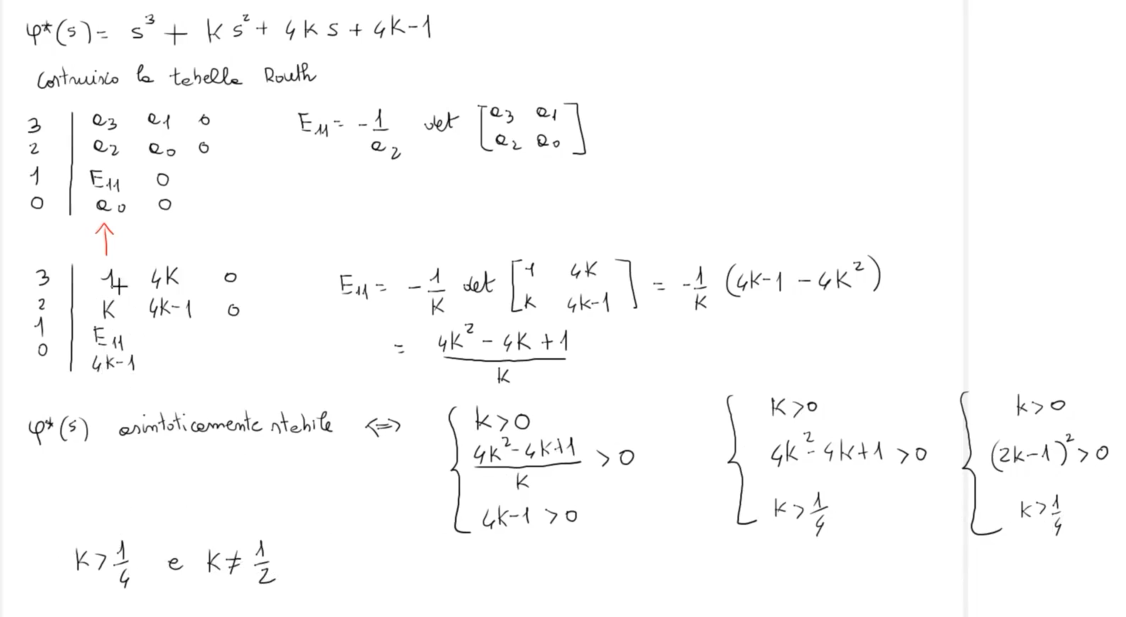 φ*(s) = s³ + Ks² + 4Ks + 4K-1
Costruisco la tabella Routh
3 | a3 a1 0
2 | a2 a0 0
1 | E11 0
0 | a0 0
E11 = -1/a2 det [a3 a1; a2 a0]
↑
3 | 1 4K 0
2 | K 4K-1 0
1 | E11
0 | 4K-1
E11 = -1/K det [1 4K; K 4K-1] = -1/K (4K-1 - 4K²)
= (4K² - 4K + 1)/K
φ*(s) asintoticamente stabile <=> { K>0; (4K²-4K+1)/K > 0; 4K-1 > 0
{ K>0; 4K²-4K+1 > 0; K > 1/4
{ K>0; (2K-1)² > 0; K > 1/4
K > 1/4 e K ≠ 1/2